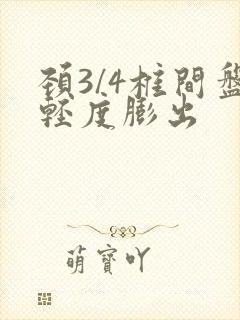 頚3/4椎間盤
輕度膨出
萌寶吖